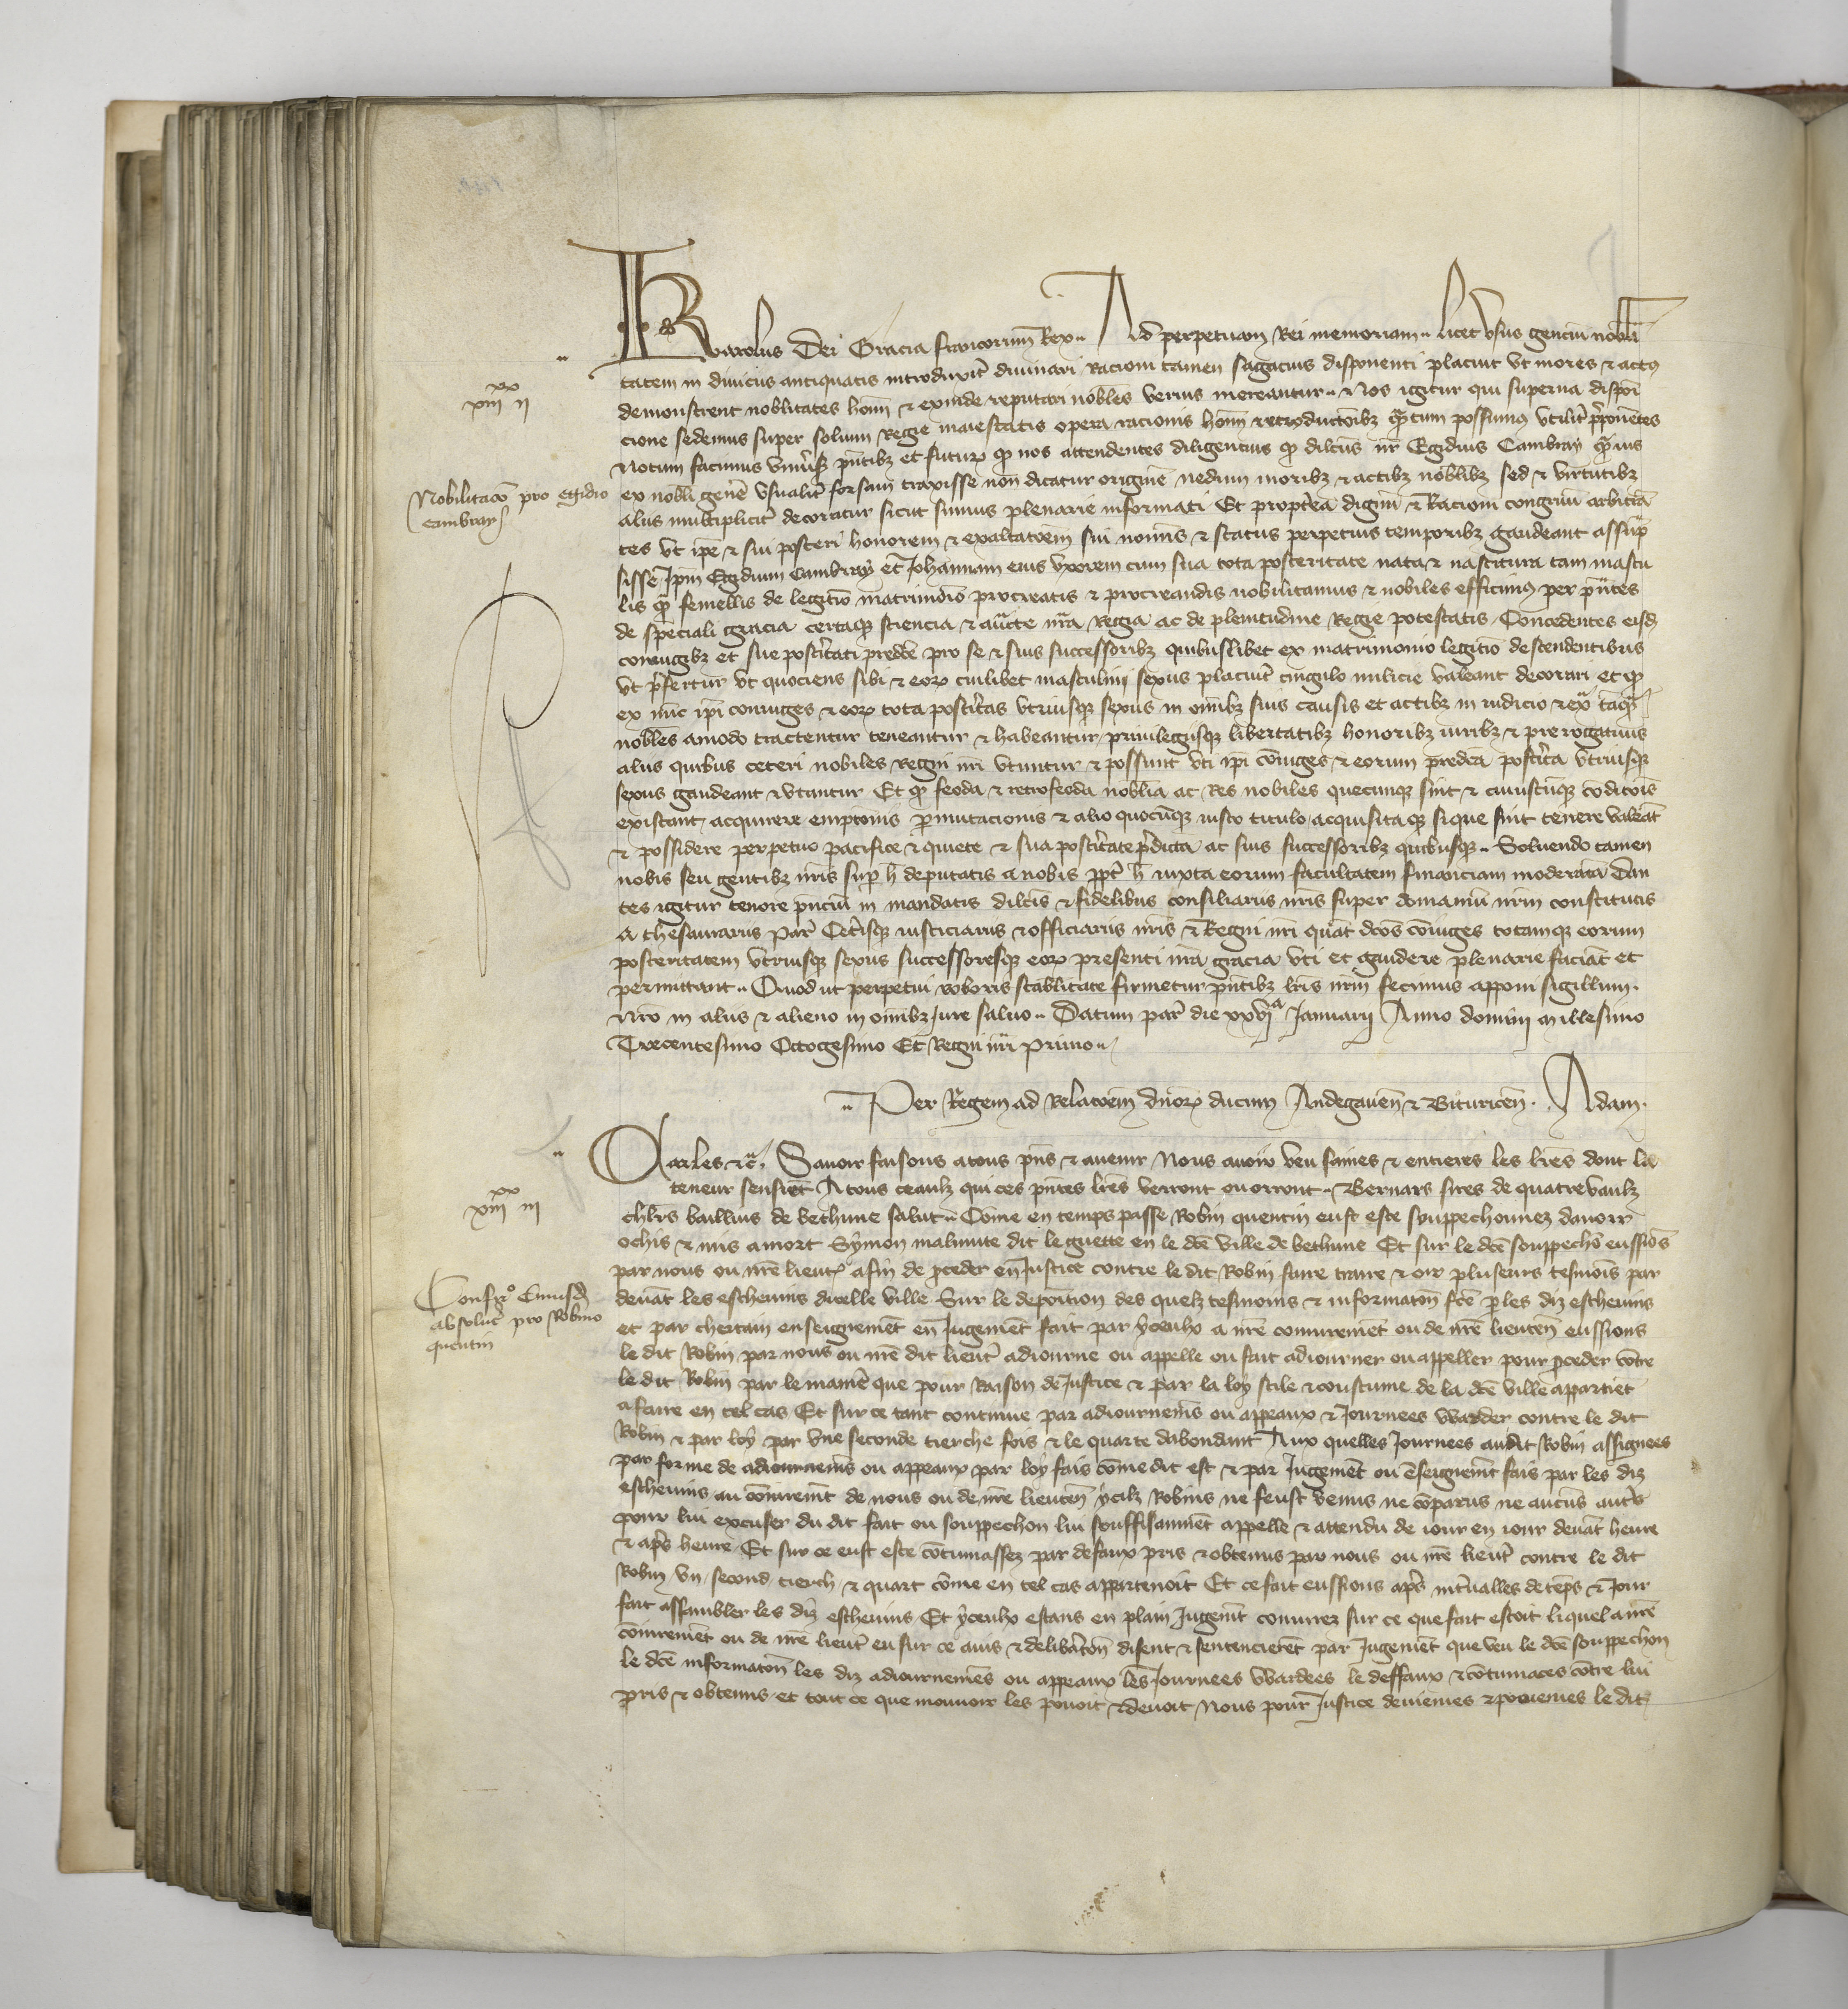 Karolus Dei Gracia francorum Rex Ad perpetuam Rei memoriam licet usus gencium nobili
tatem in divicus antiquatis introduxit divinari Racioni tamen sagacius disponenti placuit ut mores & actus
xiiii xx ii
demonstrent nobilitates hom̄ & exinde reputari nobiles verius mereantur Nos igitur qui superna disponi
cione sedemus super solium Regie maiestatis opera racionis possumus utilit̄ p̄ponētes
Notum facimus univ̄sis p̄ntibz et futur̄ q̄ nos attendentes diligencius q̄ dilc̄us nr̄ Egidius Cambray
Nobilitacō pro Egidio
Cambray
ex nobli gen̄e usualit̄ forsam traxisse non dicatur origine nedum moribz & actibz noblibz sed & virtutibz
alus multiplicit̄ decoratur sicut sumus plenarie informati Et propt̄ea dignū & Racioni congruū arbitrā
tes ut ip̄e & sui posteri honorem & exaltac̄oem sui nom̄is & status perpetuis temporibz gaudeant assūp
sisse Ip̄m Egidium Cambray et Johannam eius uxorem cum sua tota posteritate nata & nascitura tam mascu
lis q̄ femellis de legitīo matrimōio procreatis & procreandis nobilitamus & nobiles efficimus per p̄ntes
de speciali gracia certaq̄ sciencia & auc̄te nr̄a Regia ac de plenitudine Regie potestatis Concedentes eisd̄
coniugibz et sue post̄itati predc̄e pro se & suis successoribz quibuslibet ex matrimonio legitīo descendentibus
ut p̄fertur ut quociens sibi & eor̄ cuilibet masculini sexus placuit̄ cingulo milicie valeant decorari et q̄
ex nūc ip̄i coniuges & eor̄ tota post̄itas utriusq̄ sexus in om̄ibz suis causis et actibz in iudicio & ext̄ tāq̄
nobles amodo tractentur teneantur & habeantur privilegiisq̄ libertatibz honoribz iuribz & prerogativis
alus quibus ceteri nobiles Regni nr̄i utuntur & possunt uti ip̄i cōiuges & eorum predc̄a post̄ita utriusq̄
sexus gaudeant & utantur Et q̄ feoda & retrofeoda nobilia ac Res nobiles quecunq̄ sint & cuiuscūq̄ cōdic̄ois
existant acquirere emptōnis p̄mutacionis & alio quocūq̄ iusto titulo acquisitaq̄ sique sint tenere valeāt
& possidere perpetuo pacifice & quiete & sua post̄itate p̄dicta ac suis successoribz quibusq̄ Solvendo tamen
nobis seu gentibz nr̄is sup̄ h̄ deputatis a nobis pp̄t̄ h̄ iuxta eorum facultatem financiam moderatā Dan
tes igitur tenore p̄nciū in mandatis dilc̄is & fidelibus consiliariis nr̄is super domaniū nr̄m constitutis
a thesaurariis par̄ Cet̄isq̄ iusticiariis & officiariis nr̄is & Regni nr̄i quāt dc̄os cōiuges totamq̄ eorum
posteritatem utriusq̄ sexus successoresq̄ eor̄ presenti nr̄a gracia uti et gaudere plenarie faciāt et
permittant Quod ut perpetui roboris stabilitate firmetur p̄ntibz lr̄is nr̄m fecimus apponi sigillum
Nr̄o in alus & alieno in om̄ibz Jure salvo Datum par̄ die xxvj a Januarii Anno domini millesimo
Trecentesimo Octogesimo Et Regni nr̄i primo
Per Regem ad Relac̄oem dn̄or̄ ducum Andegaven̄ & Bituricen̄ Adam
Charles &c̄ Savoir faisons a tous p̄ns & avenir Nous avoir veu saines & entieres les lr̄es dont la
xiiii xx iii
teneur sensuit A tous ceaulz qui ces p̄ntes lr̄es verront ou orront Bernars sires de quatrevaulz
chlr̄s baillius de bethune salut Cōme en temps passe Robin quentin eust este souppechonnez davoir
ochis & mis a mort Symon malmute dit le guette en le dc̄e ville de bethune Et sur le dc̄e souppechō eussiōs
par nous ou nr̄e lieut̄ afin de p̄ceder en Justice contre le dit Robin faire traire & oir pluseurs tesmoīs par
devāt les eschevins dicelle ville Sur le deposition des quelz tesmoins & informatōn fc̄e p̄ les diz eschevins
Confir̄o Cuiusd̄
absoluc̄ pro Robino
quentin
et par chertain enseignemēt en Jugemēt fait par yceulx a nr̄e coniuremēt ou de nr̄e lieuten̄ eussions
le dit Robin par nous ou nr̄e dit lieut̄ adiourne ou appelle ou fait adiourner ou appeller pour p̄ceder cōtre
le dit Robin par le manie que pour Raison de Justice & par la loy stile & coustume de la dc̄e ville appartiēt
a faire en tel cas Et sur ce tant continue par adiournem̄s ou appeaux & Journees warder contre le dit
Robin & par loy par une seconde tierche fois & le quarte dabondant Aux quelles Journees au dit Robin assignees
par forme de adiournem̄s ou appeaux par loy fais cōme dit est & par Jugemēt ou ēseignem̄t fais par les diz
eschevins au cōiurem̄t de nous ou de nr̄e lieuten̄ ycilz Robins ne feust venus ne cōparus ne aucūs autr̄s
pour lui excuser du dit fait ou souppechon lui souffisanmēt appelle & attendu de iour en iour devāt heure
& apr̄s heure Et sur ce eust este cōtumassez par defaux pris & obtenus par nous ou nr̄e lieut̄ contre le dit
Robin un second tierch & quart cōme en tel cas appartenoit Et ce fait eussions apr̄s int̄valles de tēps & Jour
fait assambler les diz eschevins Et yceulx estans en plain Jugem̄t coniurez sur ce que fait estoit liquel a nr̄e
cōiuremēt ou de nr̄e lieut̄ eu sur ce avis & delib̄atōn disent & sentencierēt par Jugemēt que veu le dc̄e souppechon
le dc̄e informatōn les diz adiournemēs ou appeaux les Journees wardees le deffaux & cōtumaces cōtre lui
pris & obtenus et tout ce que mouvoir les povoit & devoit Nous pour Justice deviemes & poviemes le dit